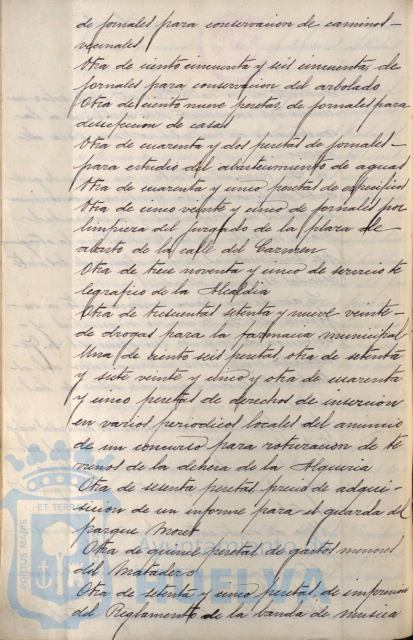 de jornales para conservacion de caminos
vecinales
Otra de ciento cincuenta y seis cincuenta, de
jornales para conservacion del arbolado
Otra de ciento nueve pesetas, de jornales para
desifeccion de casas
Otra de cuarenta y dos pesetas de jornales
para estudio del abastecimiento de aguas
Otra de cuarenta y cinco pesetas de especificos
Otra de cinco veinte y cinco de jornales por
limpieza del juzgado de la plaza de
abasto de la calle del Carmen
Otra de trece noventa y cinco de servicio te
legrafico de la Alcaldia
Otra de trescientas setenta y nueve veinte
de drogas para la farmacia municipal
Una de ciento seis pesetas, otra de setenta
y siete veinte y cinco y otra de cuarenta
y cinco pesetas de derechos de insercion
en varios periodicos locales del anuncio
de un concurso para roturacion de te
rrenos de la dehesa de la Alqueria
Otra de sesenta pesetas precio de adqui-
sision de un informe para el guarda del
parque Moret
Otra de quince pesetas de gastos menores
del Matadero
Otra de setenta y cinco pesetas de impresion
del Reglamento de la banda de musica
PORTUS MARIS
ET TERR
Ayuntamiento de
HUELVA